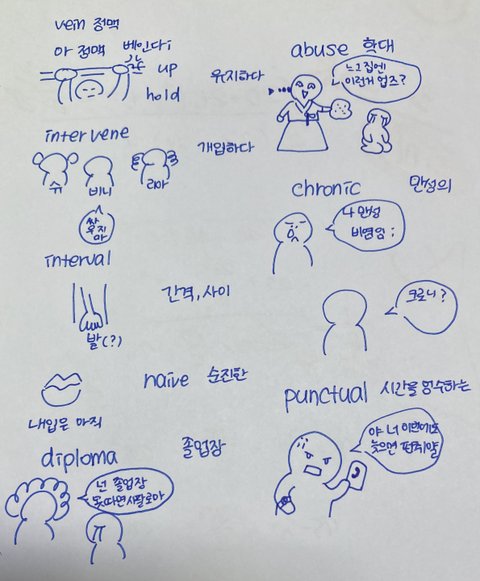 vein 정맥
아 정맥 베인다;
up 유지하다
hold
intervene 개입하다
슈 비니 라마
싸우지마
interval
간격, 사이
발(?)
naive 순진한
내입은 아직
diploma 졸업장
넌 졸업장
못따면 사팔로마
abuse 학대
느그집엔
이런거 업즈?
chronic 만성의
나 만성
비염임;
크로니?
punctual 시간을 엄수하는
야 너 이번에도
늦으면 펀취얄